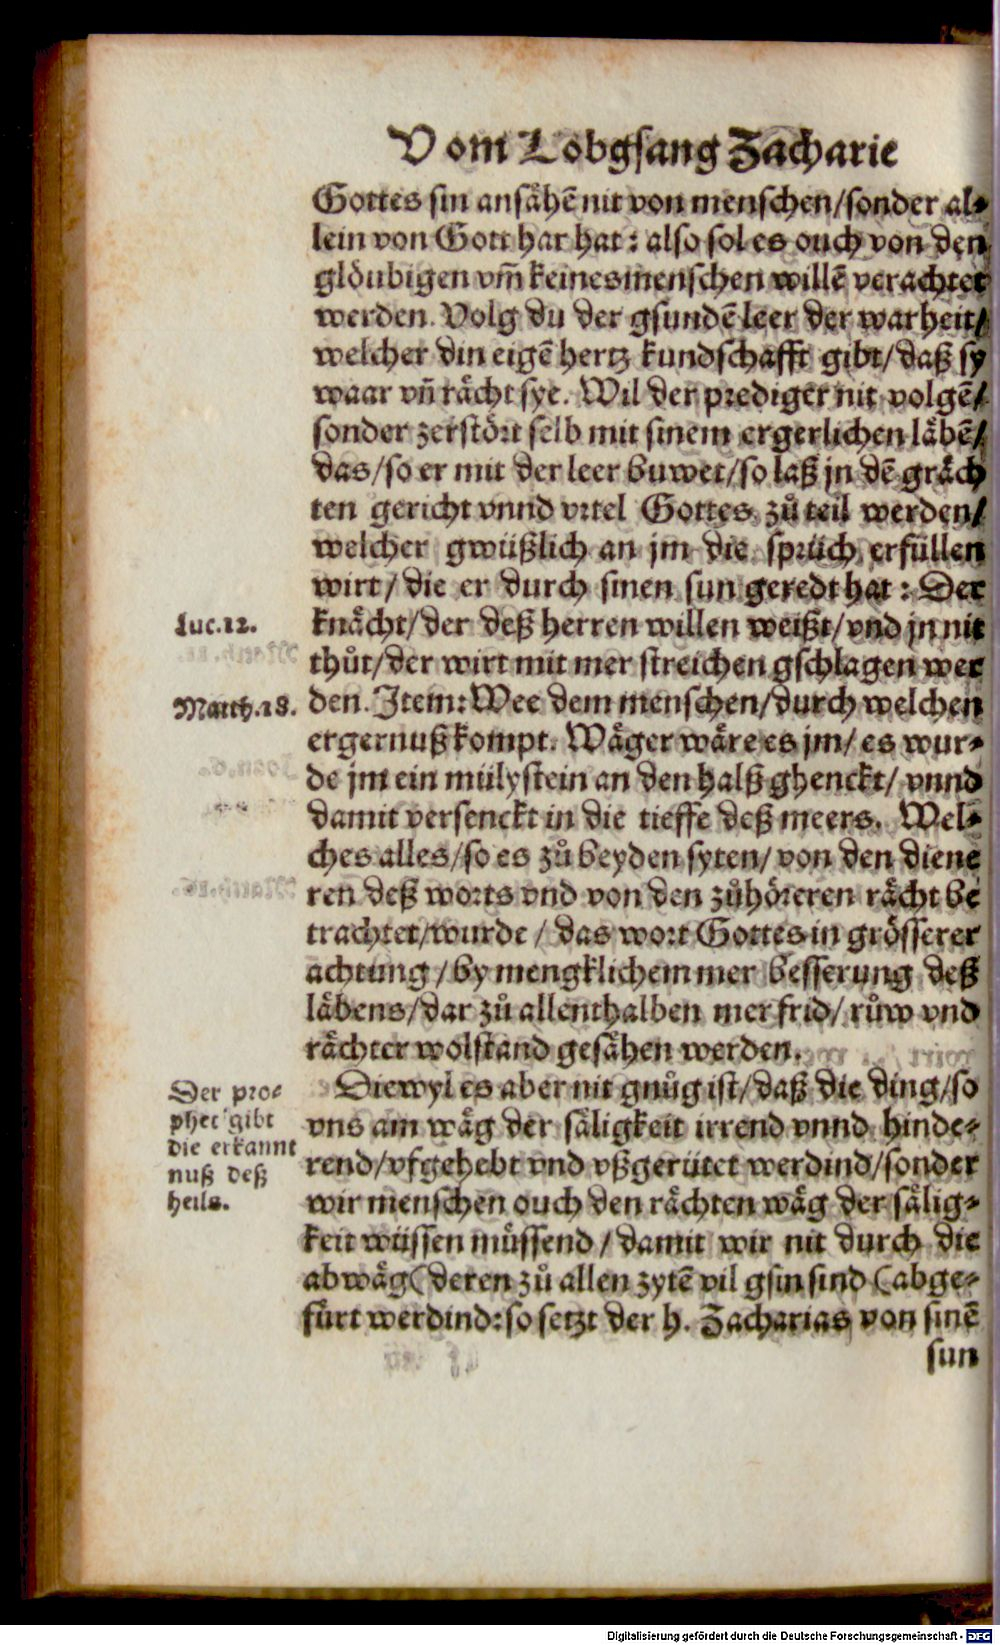 Vom Lobgsang Zacharie
Gottes sin ansähē nit von menschen/sonder al⸗
lein von Gott har hat: also sol es ouch von den
glöubigen vm̄ keines menschen willē verachtet
werden. Volg du der gsundē leer der warheit/
welcher din eigē hertz kundschafft gibt/daß sy
waar vn̄ rächt sye. Wil der prediger nit volgē/
sonder zerstört selb mit sinem ergerlichen läbē/
das/so er mit der leer buwet/so laß jn dē gräch
ten gericht vnnd vrtel Gottes zů teil werden/
welcher gwüßlich an jm die sprüch erfüllen
wirt/die er durch sinen sun geredt hat: Der
Luc.12.
knächt/der deß herren willen weißt/vnd jn nit
thůt/der wirt mit mer streichen gschlagen wer
Matth.18.
den. Item: Wee dem menschen/durch welchen
ergernuß kompt. Wäger wäre es jm/es wur⸗
de jm ein mülystein an den halß ghenckt/vnnd
damit versenckt in die tieffe deß meers. Wel⸗
ches alles/so es zů beyden syten/von den diene
ren deß worts vnd von den zůhöreren rächt be
trachtet/wurde/das wort Gottes in grösserer
achtung/by mengklichem mer besserung deß
läbens/dar zů allenthalben mer frid/růw vnd
rächter wolstand gesähen werden.
Der pro⸗
phet gibt
die erkannt
nuß deß
heils.
Diewyl es aber nit gnůg ist/daß die ding/so
vns am wäg der säligkeit irrend vnnd hinde⸗
rend/vfgehebt vnd vßgerütet werdind/sonder
wir menschen ouch den rächten wäg der sälig⸗
keit wüssen müssend/damit wir nit durch die
abwäg(deren zů allen zytē vil gsin sind(abge⸗
fürt werdind: so setzt der h. Zacharias von sinē
sun
Digitalisierung gefördert durch die Deutsche Forschungsgemeinschaft - DFG